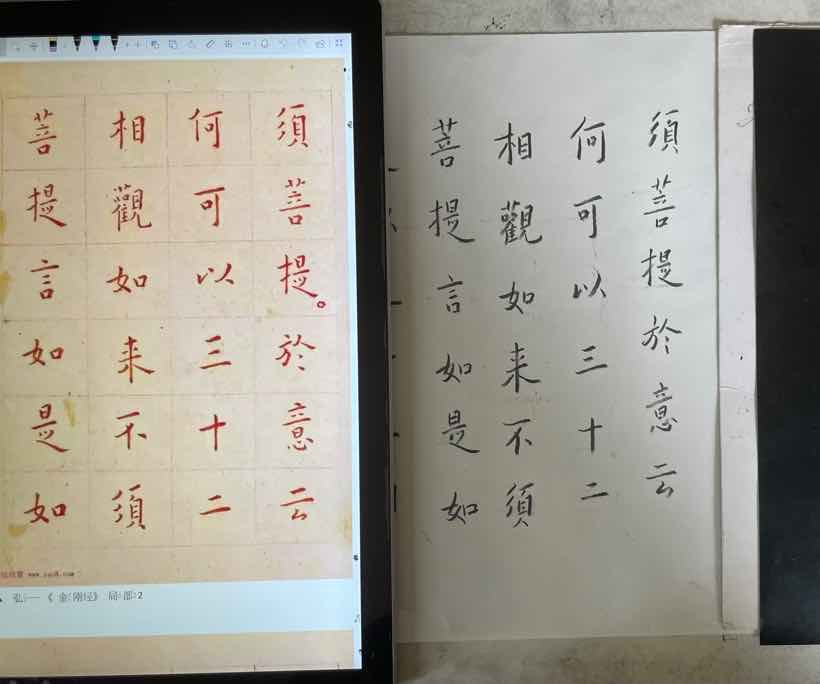 須菩提。於意云
何可以三十二
相觀如来不須
菩提言如是如
www.yac8.com
弘一《金刚经》局部2
須菩提於意云
何可以三十二
相觀如来不須
菩提言如是如